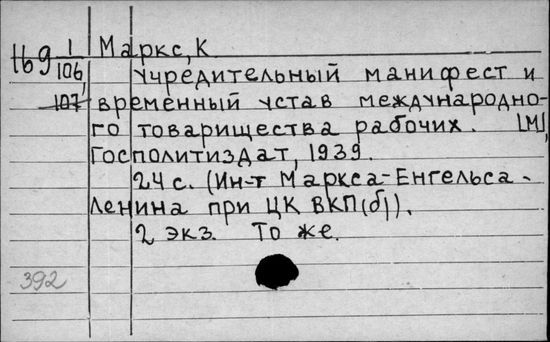 169 1 Маркс, К
106, Учредительный манифест и
107 временный устав международно-
го товарищества рабочих. [М],
Госполитиздат, 1939.
24 с. (Ин-т Маркса-Енгельса-
Ленина при ЦК ВКП(б)).
2 экз. То же.
392